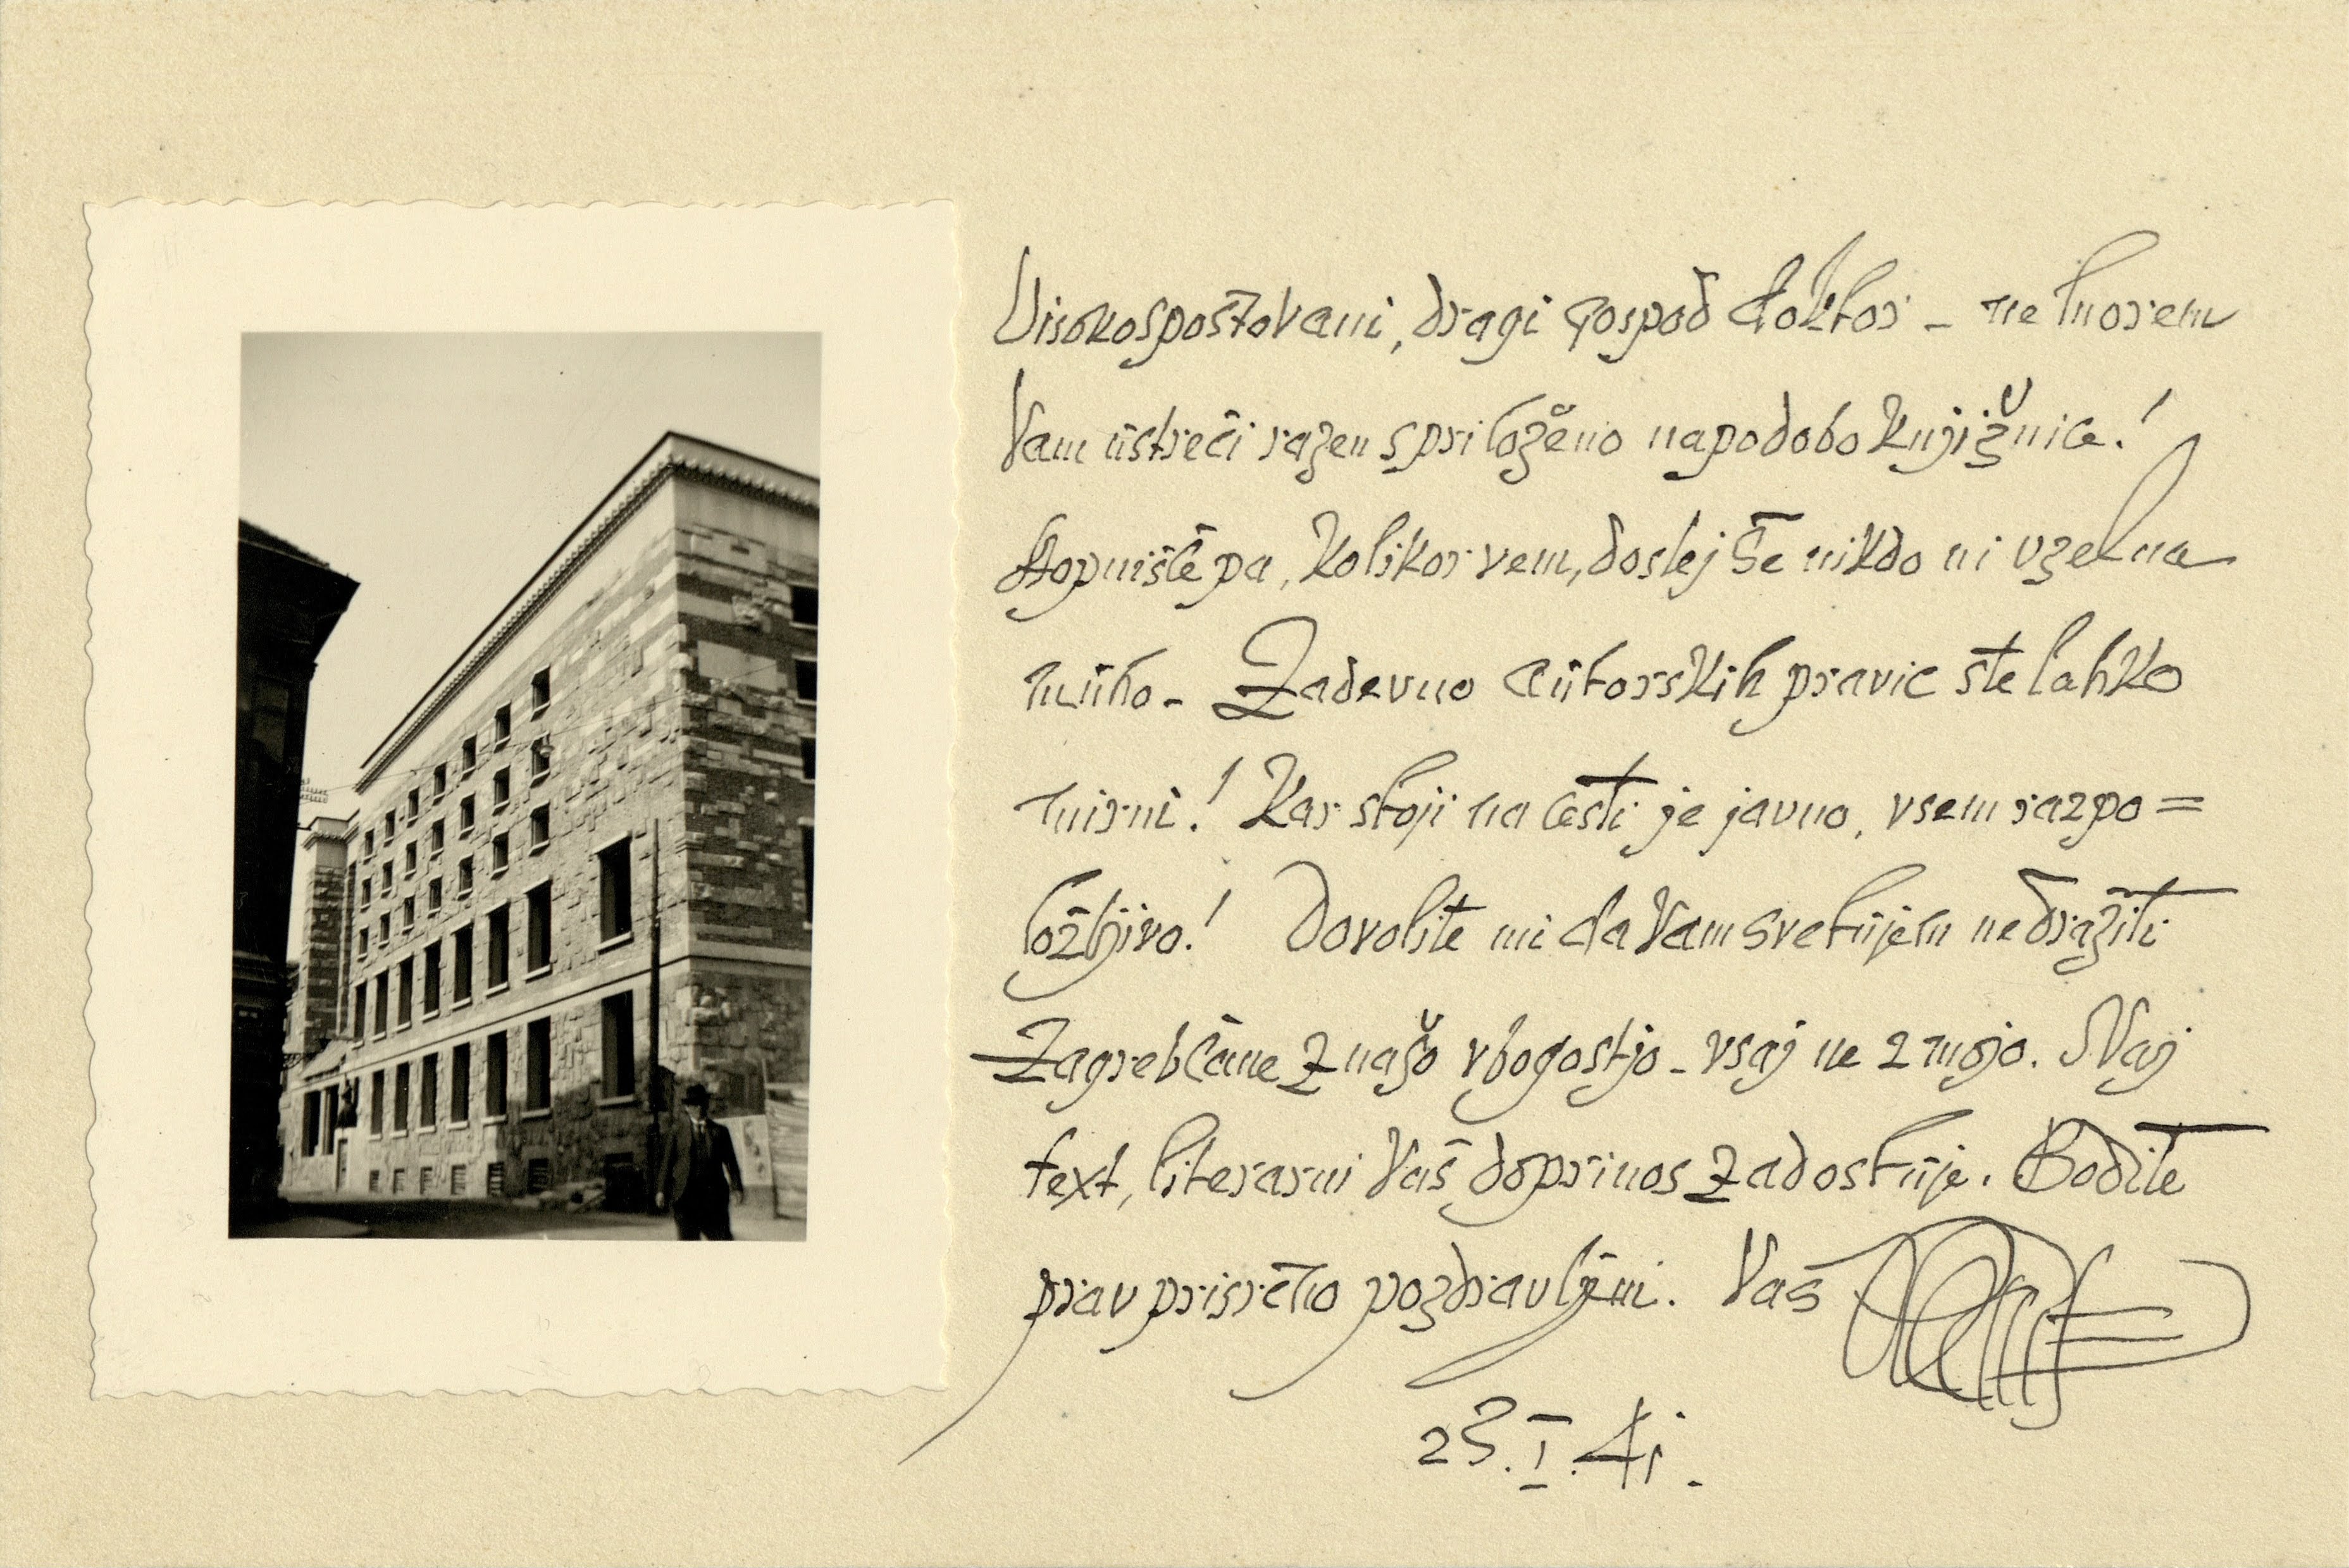 Visokospoštovani, dragi gospod doktor - ne morem
Vam ustreči razen s priloženo napodobo knjižnice!
Stopnišče pa, kolikor vem, doslej še nikdo ni vzel na
muho - Zadevno autorskih pravic ste lahko
mirni! Kar stoji na cesti je javno, vsem razpo=
ložljivo! Dovolite mi da Vam svetujem ne dražiti
Zagrebčane z našo vbogostjo - vsaj ne z mojo. Naj
text, literarni Vaš doprinos zadostuje. Bodite
prav prisrčno pozdravljeni. Vaš
23. I. 41.